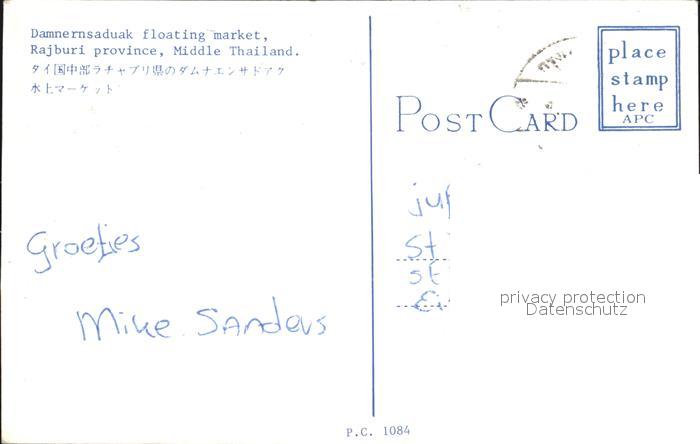 Damnernsaduak floating market,
Rajburi province, Middle Thailand.
タイ国中部ラチャブリ県のダムナエンサドアク
水上マーケット
POST CARD
place
stamp
here
APC
Groetjes
Mike Sanders
St
st
privacy protection
Datenschutz
P.C. 1084